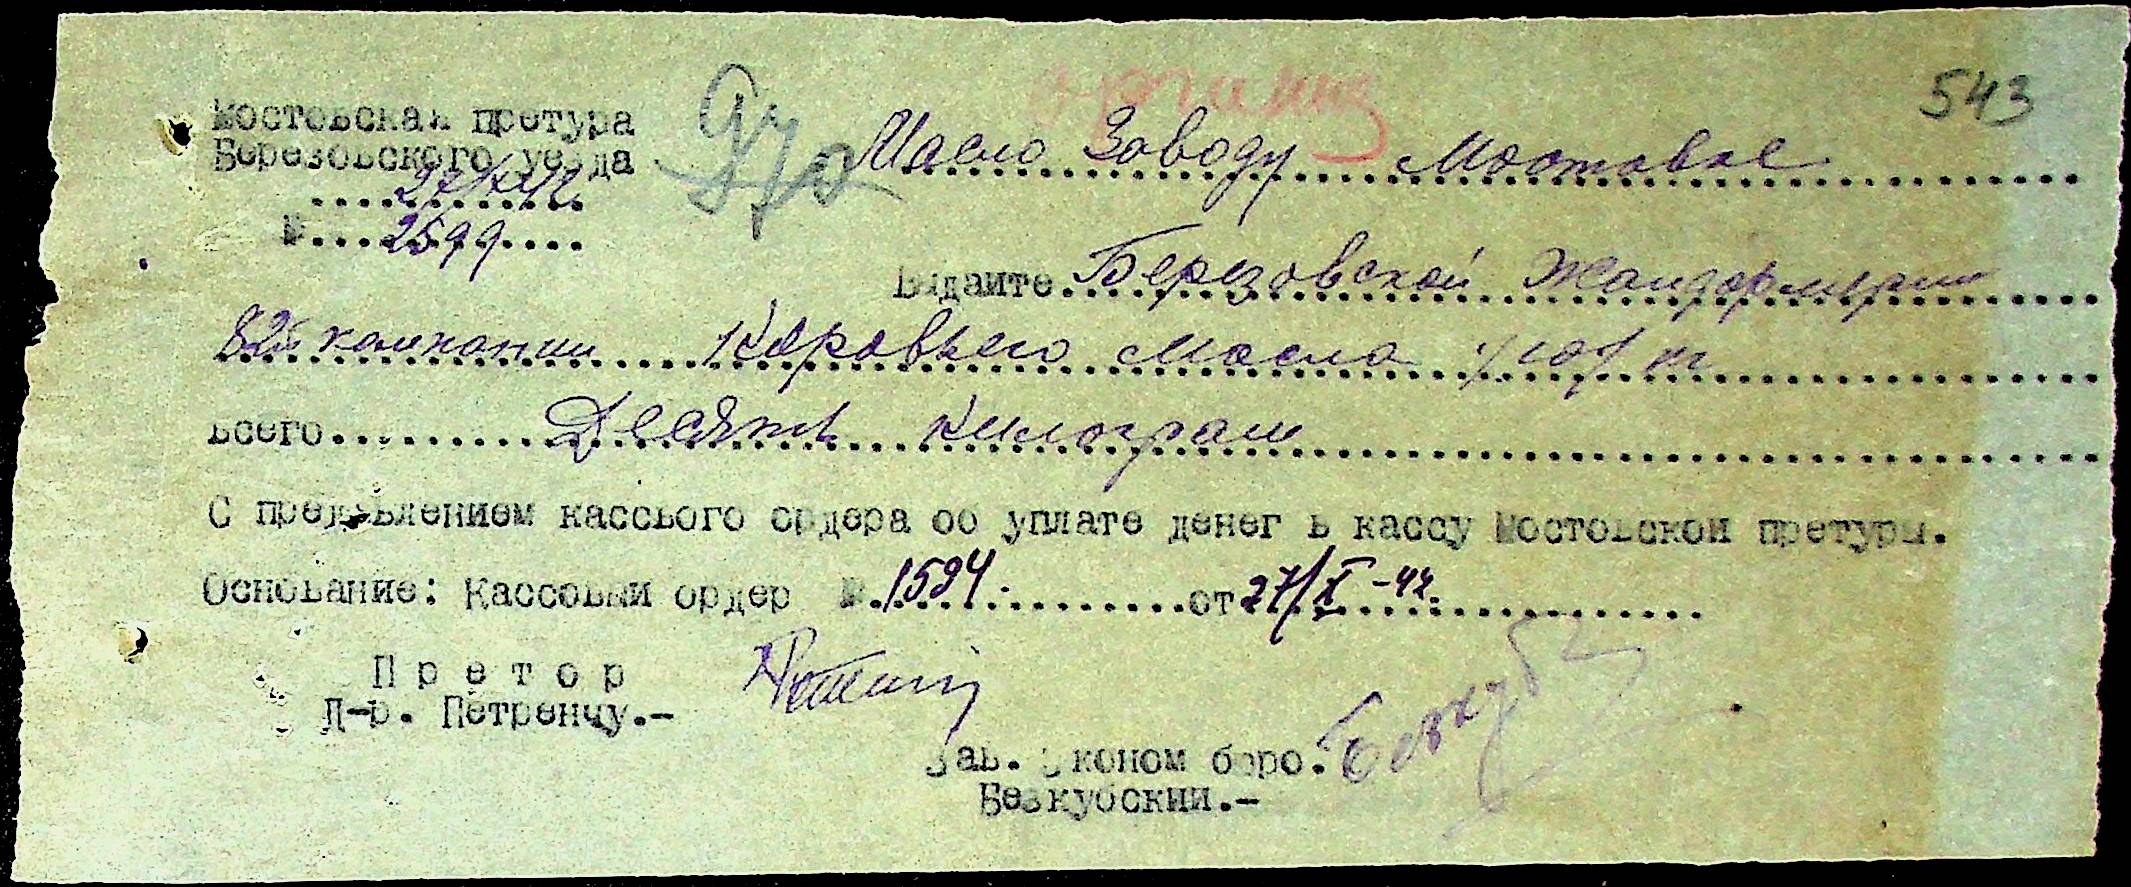 543
Мостовская претура
Березовского уезда
27/X 42
№ 2599
Масло Заводу Мостовое
Выдайте Березовской Жандармерии
82й компании Коровьего масла /10/ кг
Всего Десять килограм
С предъвлением кассвого ордера об уплате денег в кассу Мостовской претуры.
Основание: Кассовый ордер № 1594. от 27/X-42.
Претор
Д-р. Петренчу.-
Зав. Эконом бюро.
Безкубский.-